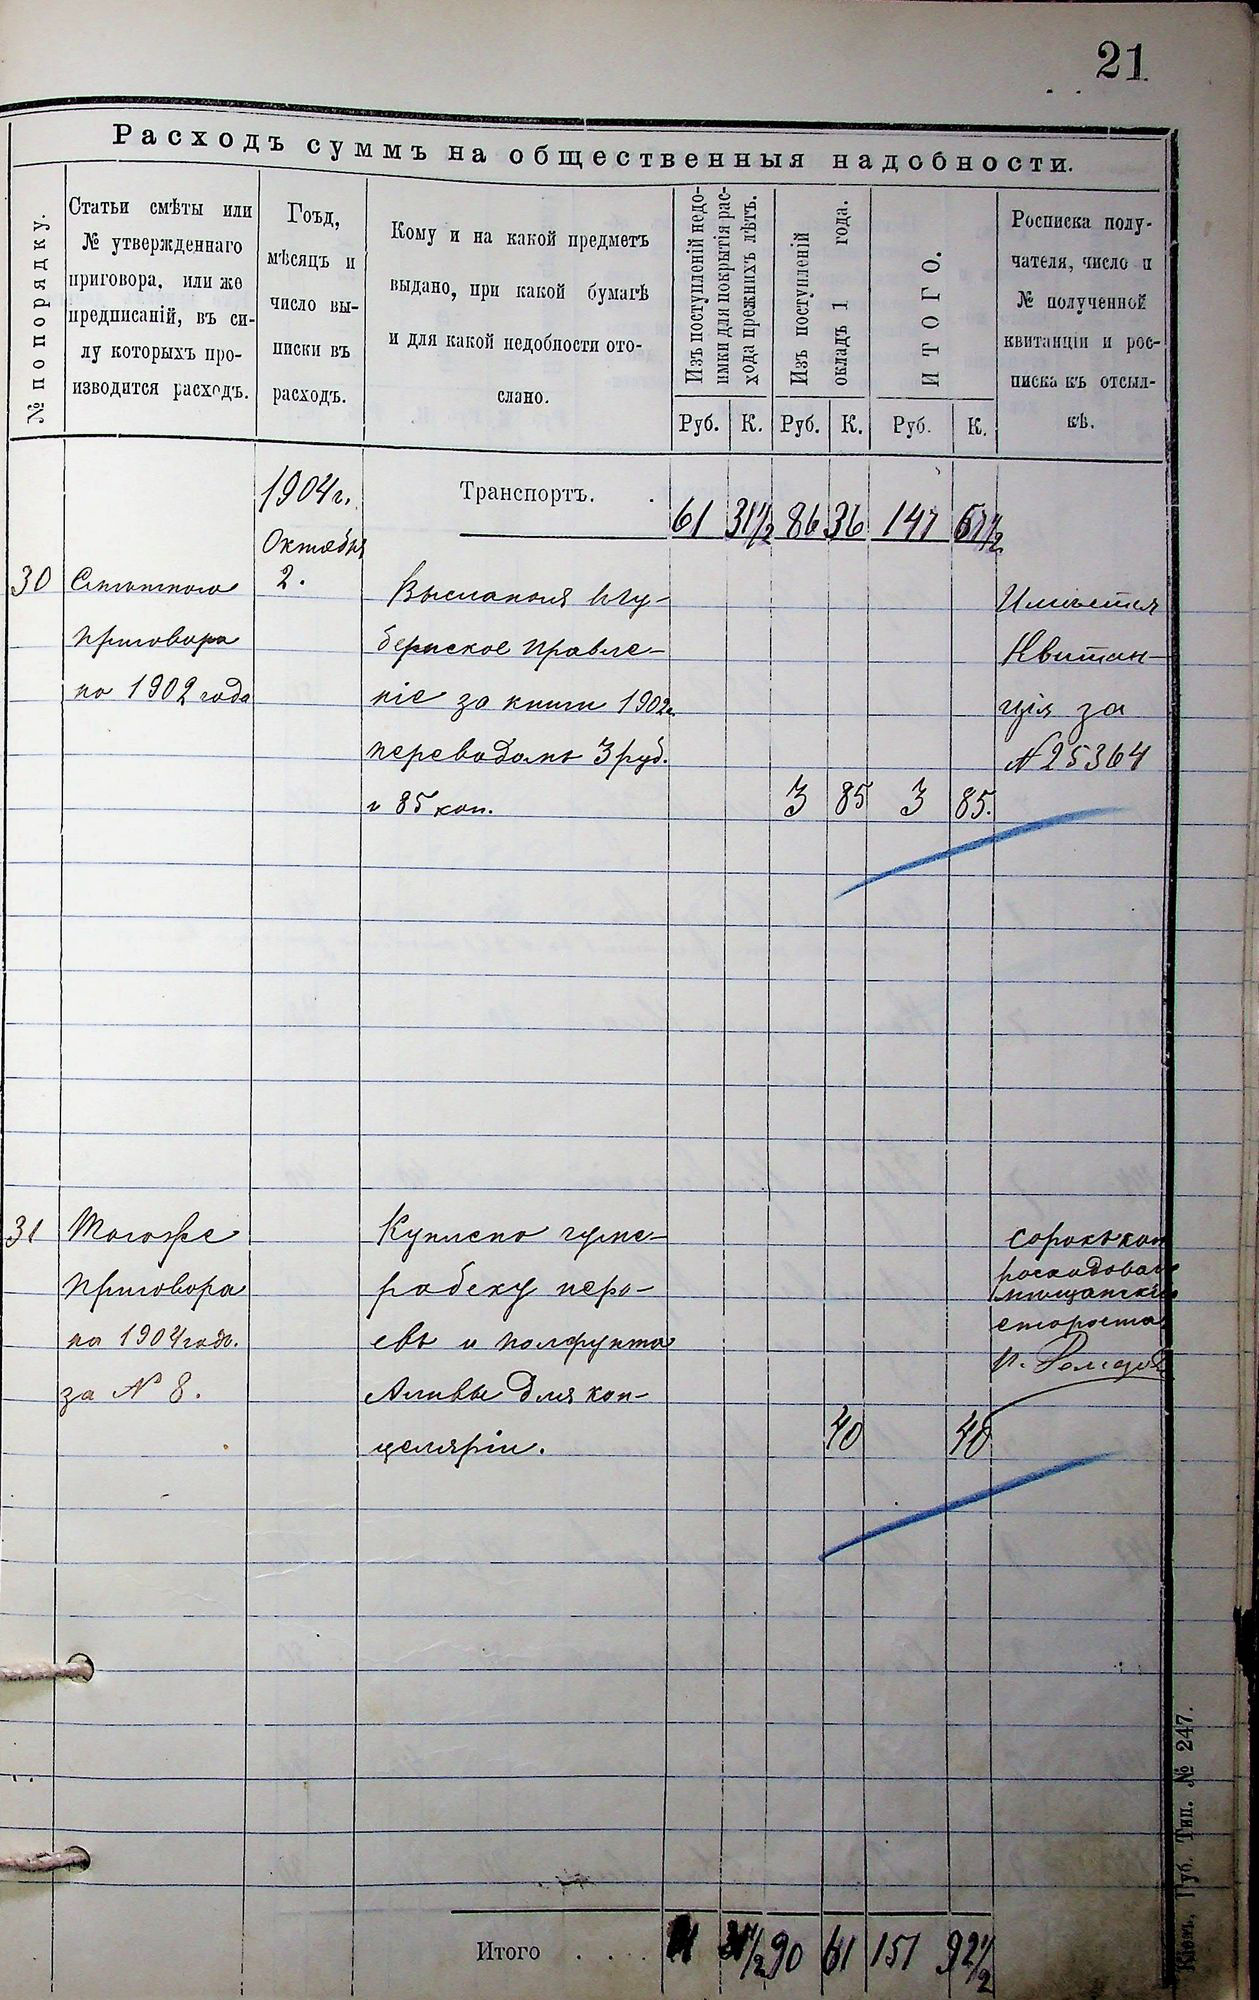 21
Расходъ суммъ на общественныя надобности.
№ по порядку.
Статьи смѣты или
№ утвержденнаго
приговора, или же
предписаній, въ си-
лу которыхъ про-
изводится расходъ.
Годъ,
мѣсяцъ и
число вы-
писки въ
расходъ.
Кому и на какой предметъ
выдано, при какой бумагѣ
и для какой надобности ото-
слано.
Изъ поступленій недо-
имки для покрытія рас-
хода прежнихъ лѣтъ.
Изъ поступленій
окладъ 1 года.
ИТОГО.
Росписка полу-
чателя, число и
№ полученной
квитанціи и рос-
писка къ отсыл-
кѣ.
Руб. К. Руб. К. Руб. К.
1904 г. Транспортъ. 61 31 1/2 86 36 147 67 1/2
Октября
30 2.
приговора
по 1902 года
Высланоя въ Гу-
бернское Правле-
ніе за книги 1902 г.
переводомъ 3 руб.
и 85 коп. 3 85 3 85.
Имѣется
Квитан-
ція за
№ 25364
31 Тогоже
приговора
на 1904 годъ.
за № 8.
Куплено
перь-
евъ и полфунта
для кан-
целяріи. 40 40
сорокъ коп
расходовалъ
мѣщанскій
староста
Итого 31 1/2 90 61 151 92 1/2
Кіовъ. Губ. Тип. № 247.